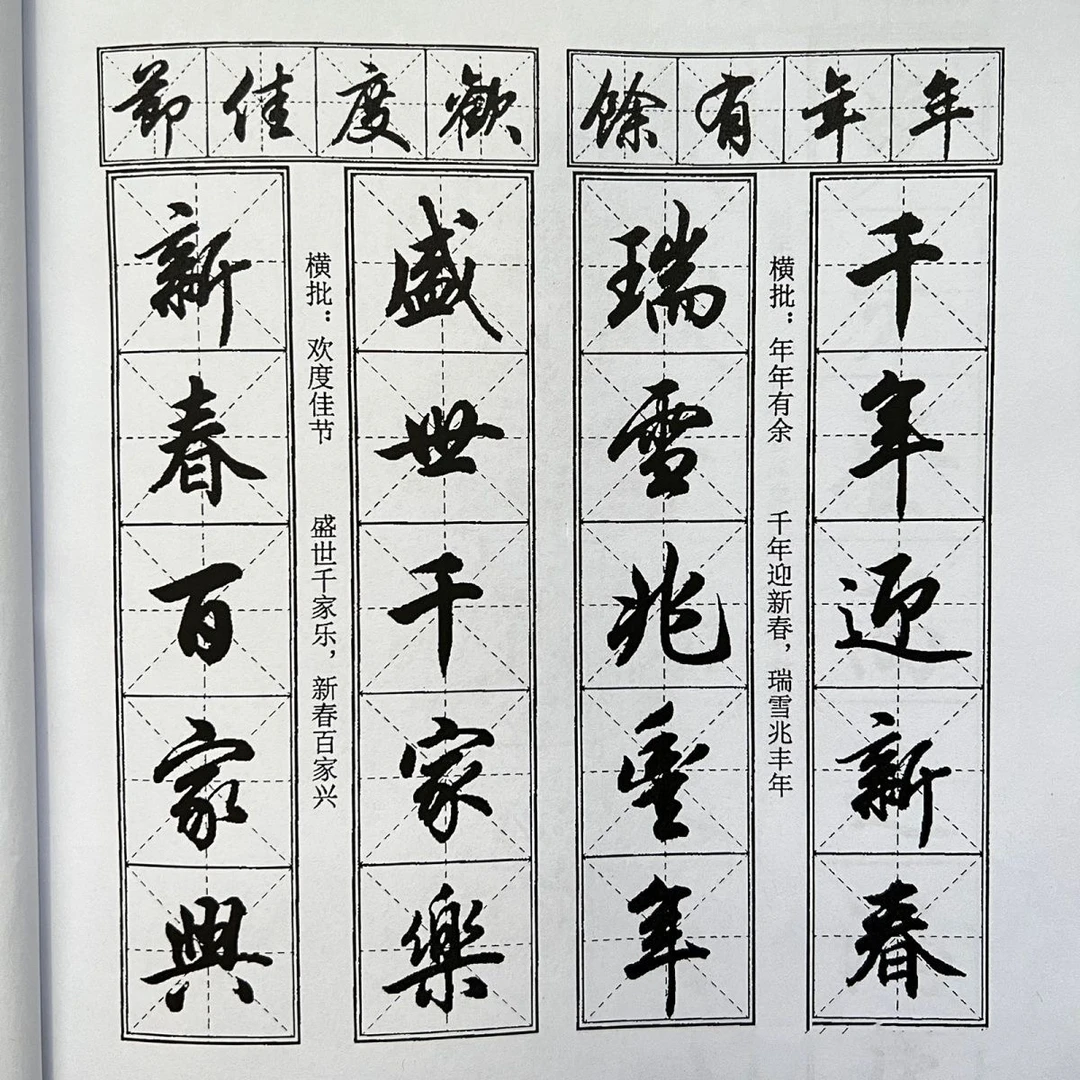 年年有餘
千年迎新春
横批：年年有余　千年迎新春，瑞雪兆丰年
瑞雪兆豐年
歡度佳節
盛世千家樂
横批：欢度佳节　盛世千家乐，新春百家兴
新春百家興